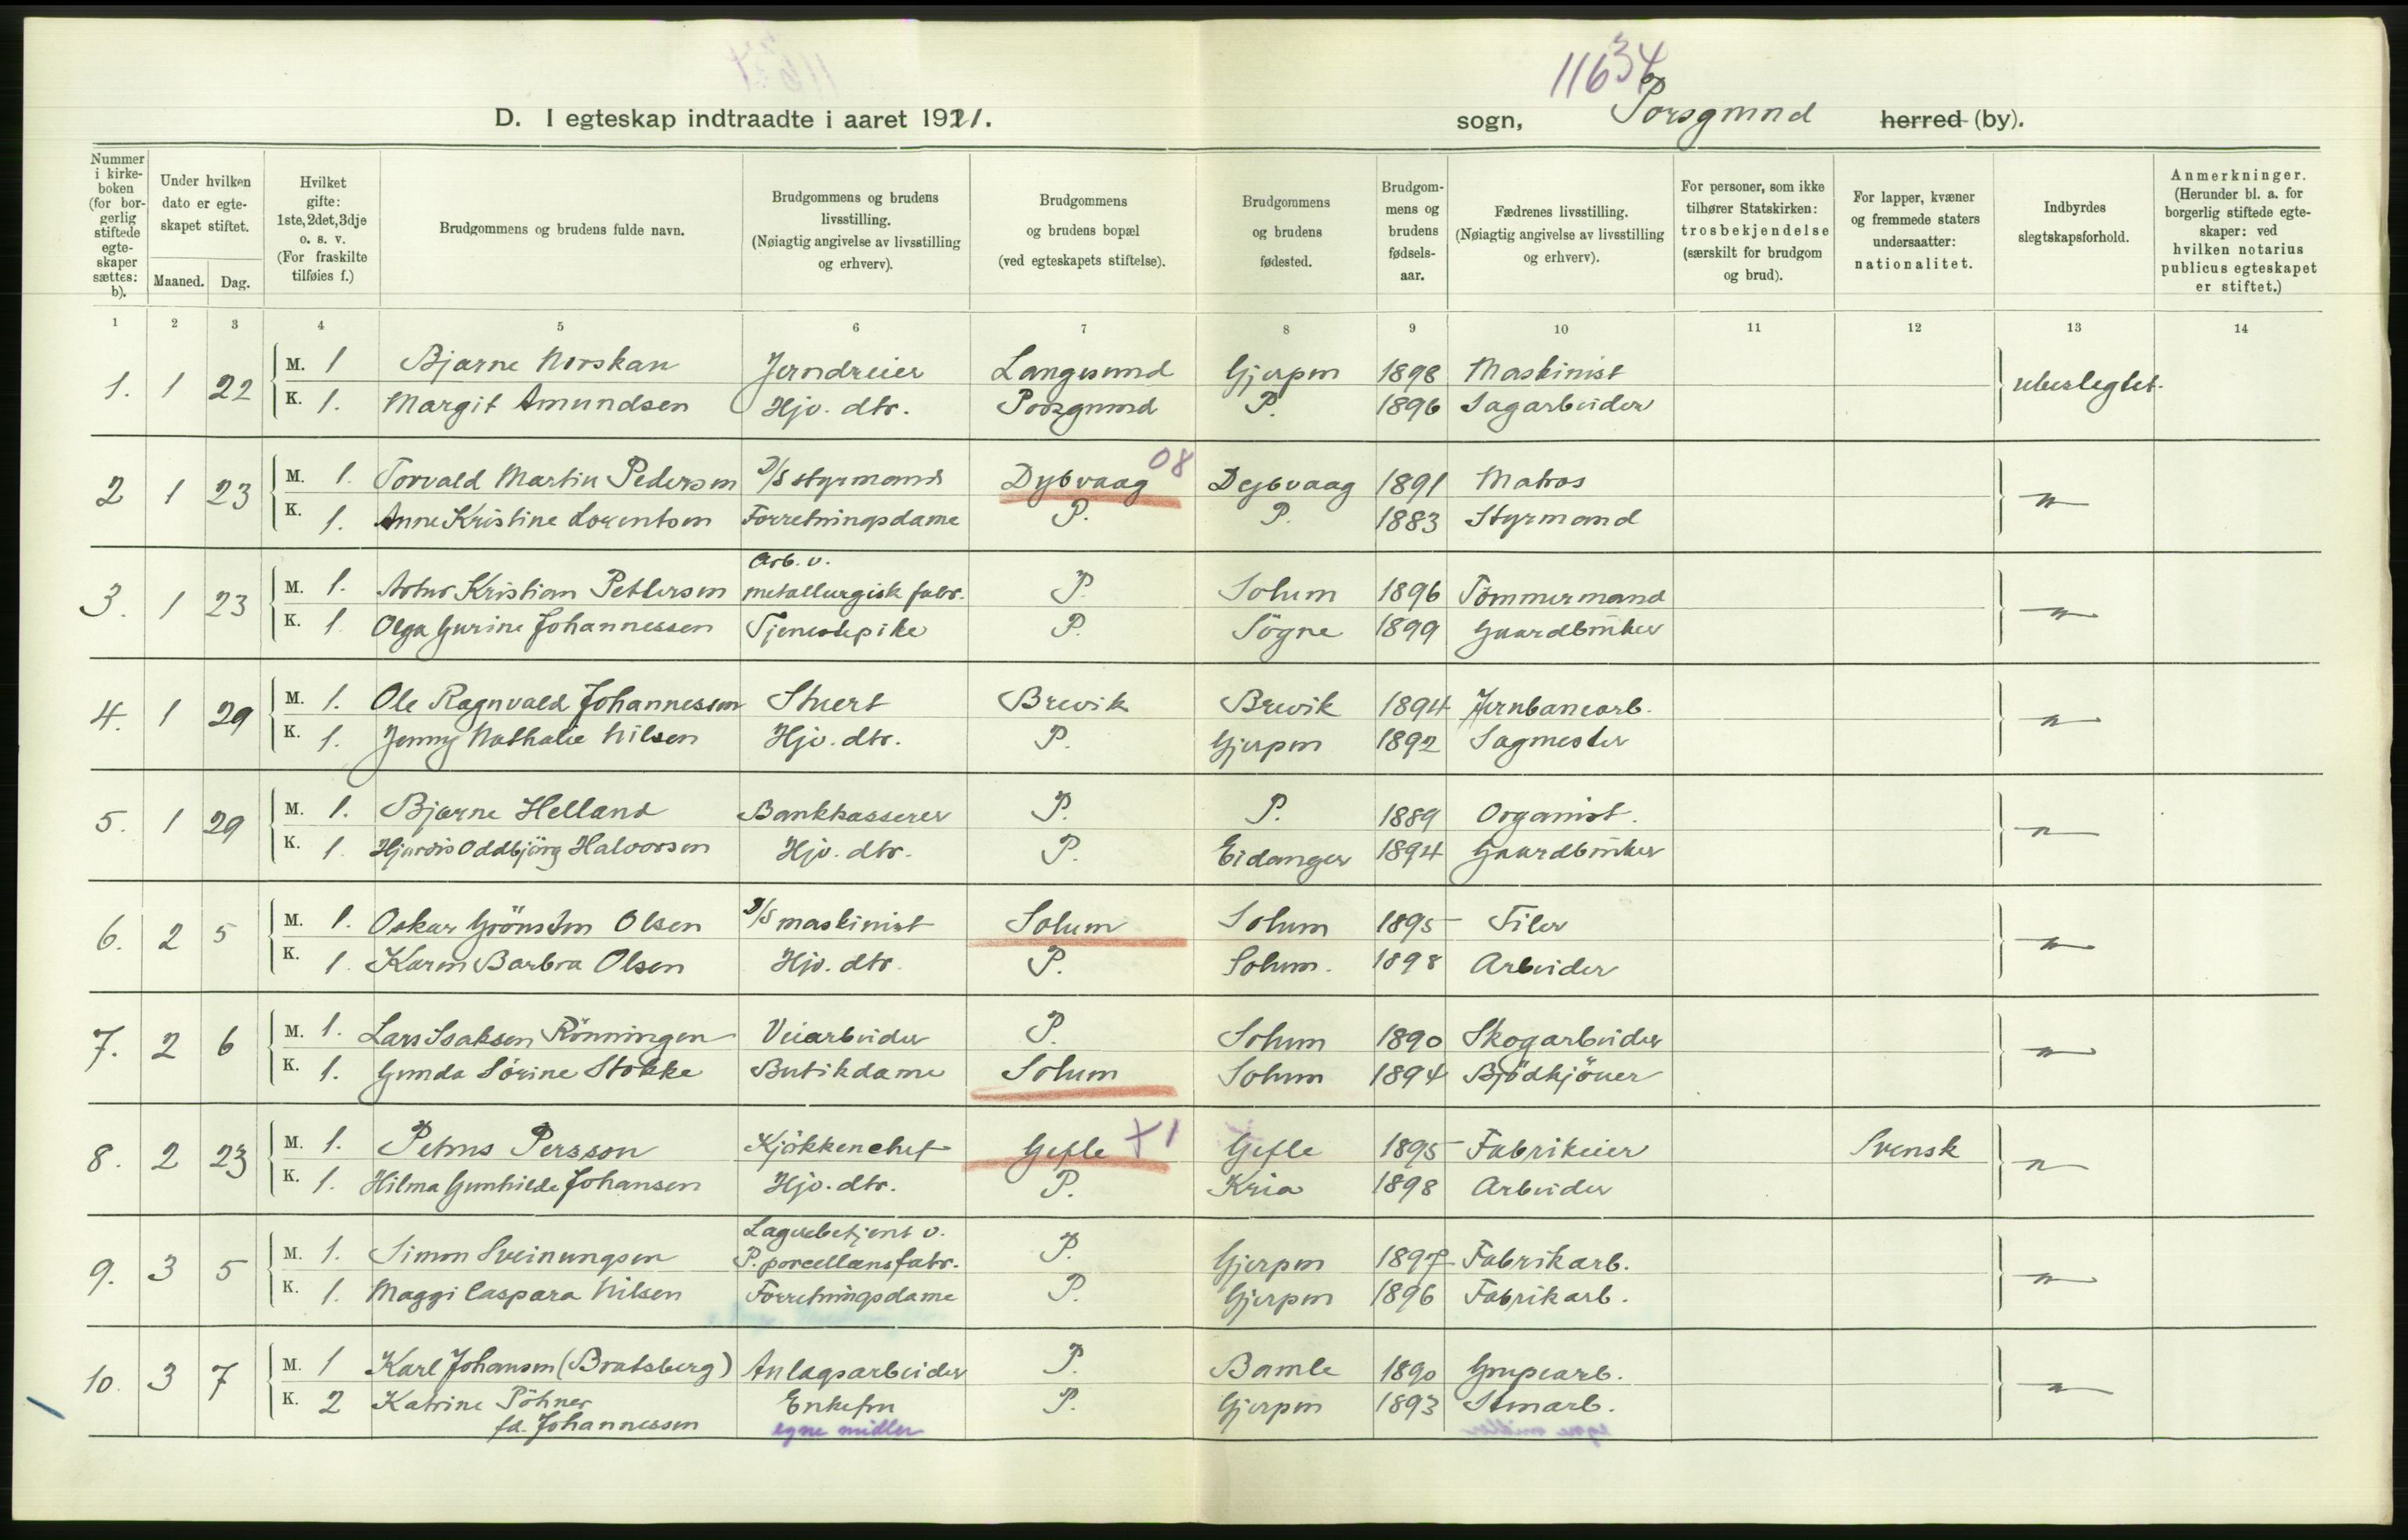 11634
D. I egteskap indtraadte i aaret 1921. sogn, Porsgrund herred (by).
Nummer i kirkeboken (for borgerlig stiftede egteskaper sættes: b).
Under hvilken dato er egteskapet stiftet.
Maaned. Dag.
Hvilket gifte: 1ste, 2det, 3dje o. s. v. (For fraskilte tilføies f.)
Brudgommens og brudens fulde navn.
Brudgommens og brudens livsstilling. (Nøiagtig angivelse av livsstilling og erhverv).
Brudgommens og brudens bopæl (ved egteskapets stiftelse).
Brudgommens og brudens fødested.
Brudgommens og brudens fødselsaar.
Fædrenes livsstilling. (Nøiagtig angivelse av livsstilling og erhverv).
For personer, som ikke tilhører Statskirken: trosbekjendelse (særskilt for brudgom og brud).
For lapper, kvæner og fremmede staters undersaatter: nationalitet.
Indbyrdes slegtskapsforhold.
Anmerkninger. (Herunder bl. a. for borgerlig stiftede egteskaper: ved hvilken notarius publicus egteskapet er stiftet.)
1 2 3 4 5 6 7 8 9 10 11 12 13 14
1. 1 22 M. 1 Bjarne Norskau Jerndreier Langesund Gjerpen 1898 Maskinist ubeslegtet.
K. 1. Margit Amundsen Hjv. dtr. Porsgrund P. 1896 Sagarbeider
2 1 23 M. 1. Torvald Martin Pedersen D/S styrmand Dybvaag 08 Dybvaag 1891 Matros —"—
K. 1. Anne Kristine Lorentsen Forretningsdame P. P. 1883 Styrmand
Arb. v.
3. 1 23 M. 1. Artur Kristian Pettersen metallurgisk fabr. P. Solum 1896 Tömmermand —"—
K. 1 Olga Gurine Johannessen Tjenestepike P. Sögne 1899 Gaardbruker
4. 1 29 M. 1. Ole Ragnvald Johannessen Stuert Brevik Brevik 1894 Jernbanearb. —"—
K. 1. Jenny Nathalie Nilsen Hjv. dtr. P. Gjerpen 1892 Sagmester
5. 1 29 M. 1. Bjarne Helland Bankkasserer P. P. 1889 Organist. —"—
K. 1. Hjørdis Oddbjörg Halvorsen Hjv. dtr. P. Eidanger 1894 Gaardbruker
6. 2 5 M. 1. Oskar Grönsten Olsen D/S maskinist Solum Solum 1895 Filer —"—
K. 1. Karen Barbra Olsen Hjv. dtr. P. Solum. 1898 Arbeider
7. 2 6 M. 1. Lars Isaksen Rönningen Veiarbeider P. Solum 1890 Skogarbeider —"—
K. 1. Gunda Sörine Stokke Butikdame Solum Solum 1894 Bjödkjöuer
8. 2 23 M. 1. Petrus Persson Kjökkenchef Gefle X1 Gefle 1895 Fabrikeier Svensk —"—
K. 1. Hilma Gunhilde Johansen Hjv. dtr. P. Kria 1898 Arbeider
Lagerbetjent v.
9. 3 5 M. 1. Simon Sveinungsen P. porcellænsfabr. P. Gjerpen 1897 Fabrikarb. —"—
K. 1. Maggi Caspara Nilsen Forretningsdame P. Gjerpen 1896 Fabrikarb.
10. 3 7 M. 1 Karl Johansen (Bratsberg) Anlægsarbeider P. Bamle 1890 Grupearb. —"—
K. 2 Katrine Pöhner Enkefru P. Gjerpen 1893 Stenarb.
fd. Johannessen egne midler